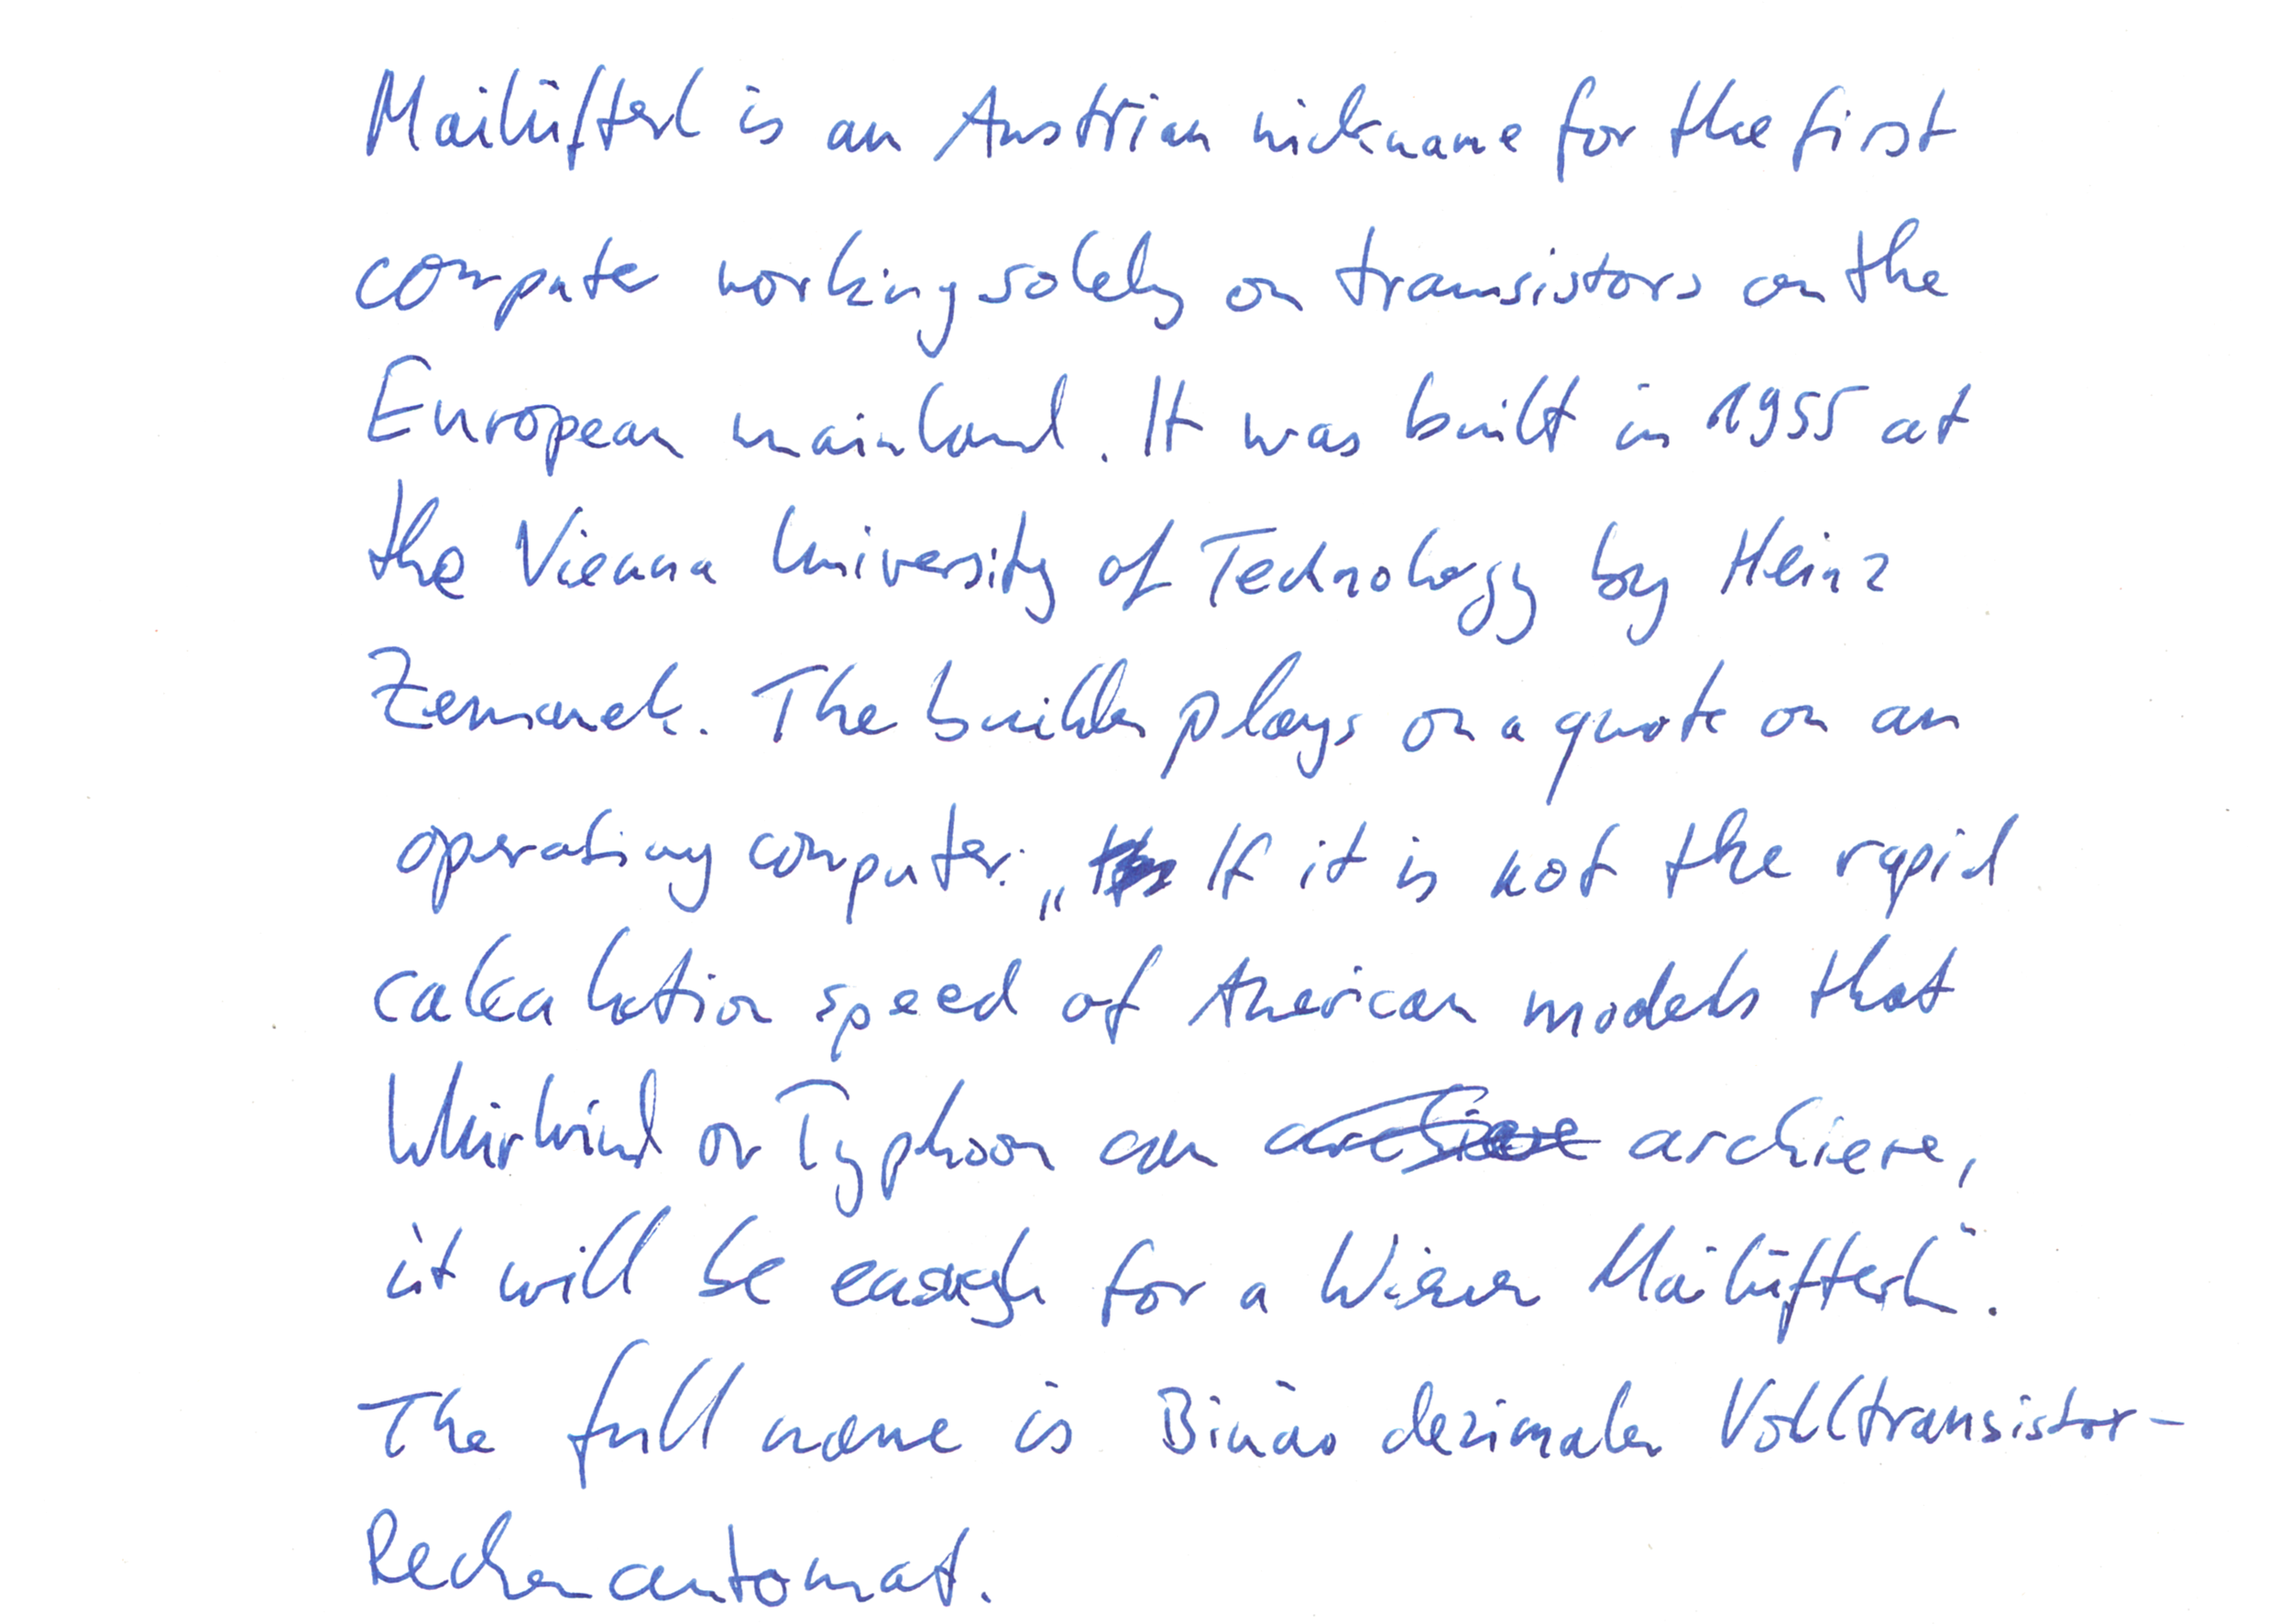 Mailüfterl is an Austrian nickname for the first
computer working solely on transistors on the
European mainland. It was built in 1955 at
the Vienna University of Technology by Heinz
Zemanek. The builder plays on a quote on an
operating computer: „If it is not the rapid
calculation speed of American models that
Whirlwind or Typhoon can archieve,
it will be enough for a Wiener Mailüfterl“.
The full name is Binär dezimaler Volltransistor-
Rechenautomat.